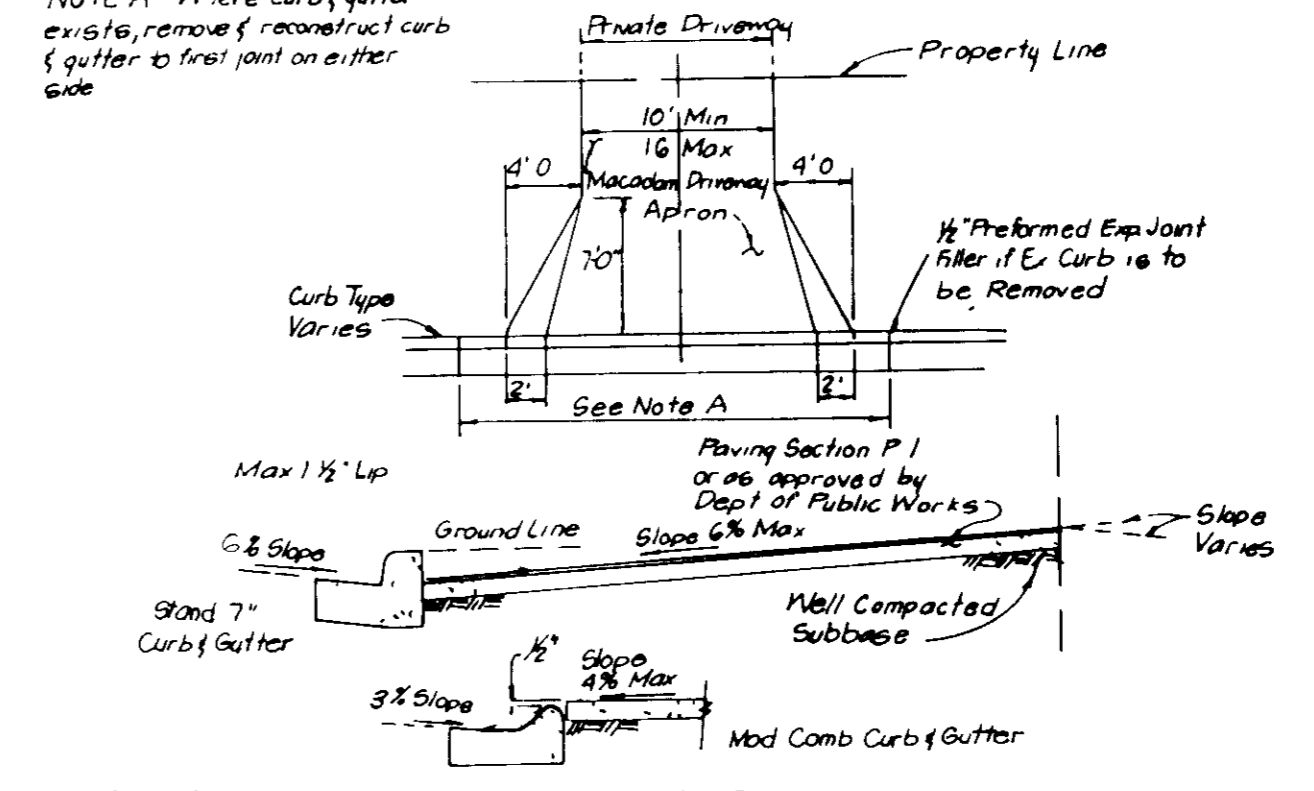 exists, remove & reconstruct curb
& gutter to first joint on either
side
Private Driveway
Property Line
10' Min
16 Max
4'0
4'0
Macadam Driveway
Apron
7'0"
1/2" Preformed Exp Joint
Filler if Ex Curb is to
be Removed
Curb Type
Varies
2'
2'
See Note A
Paving Section P 1
or as approved by
Dept of Public Works
Max 1 1/2" Lip
Ground Line
Slope 6% Max
Slope
Varies
6% Slope
Stand 7"
Curb & Gutter
Well Compacted
Subbase
1/2"
Slope
4% Max
3% Slope
Mod Comb Curb & Gutter